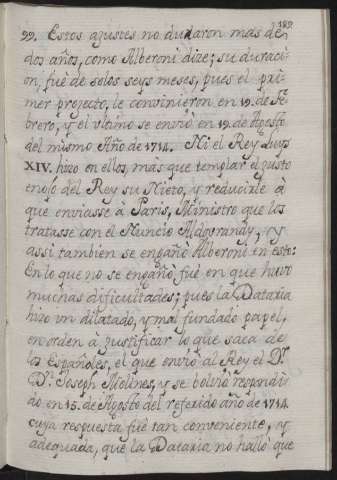 189
99. Estos ajustes no duraron mas de
dos años, como Alberoni dize; su duraci-
on, fuè de solos seys meses, pues el pri-
mer projecto, le convinieron en 19. de Fe-
brero, y el ultimo se enviò en 19. de Agosto
del mismo Año de 1714. Ni el Rey Luys
XIV. hizo en ellos, mas que templar el justo
enojo del Rey su Nieto, y reducirle à
que enviasse à Paris, Ministro que los
tratasse con el Nuncio Aldobrandy, y
assi tambien se engañò Alberoni en esto:
En lo que no se engañò, fuè en que huvo
muchas dificultades; pues la Dataria
hizo un dilatado, y mal fundado papel,
en orden a justificar lo que saca de
los Españoles, el que enviò al Rey el Dr.
Dn. Joseph Molines, y se bolviò respondi-
do en 15. de Agosto del referido año de 1714.
cuya respuesta fuè tan conveniente, y
adequada, que la Dataria no hallò que